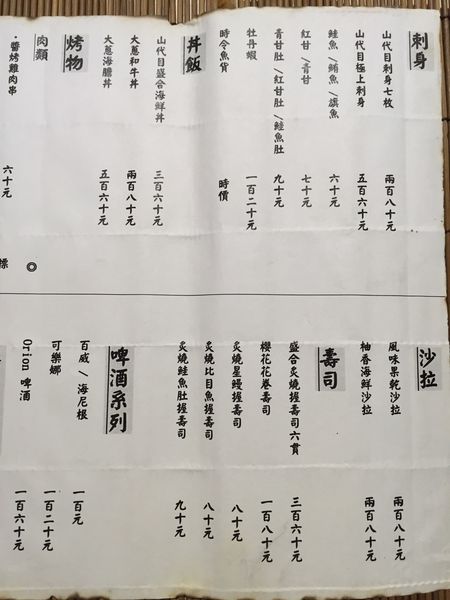 刺身
山代目刺身七枚 兩百八十元
山代目極上刺身 五百六十元
鮭魚/鮪魚/旗魚 六十元
紅甘/青甘 七十元
青甘肚/紅甘肚/鮭魚肚 九十元
牡丹蝦 一百二十元
時令魚貨 時價
丼飯
山代目盛合海鮮丼 三百六十元
大蔥和牛丼 兩百八十元
大蔥海膽丼 五百六十元
烤物
肉類
·醬烤雞肉串 六十元
◎
標
沙拉
風味果乾沙拉 兩百八十元
柚香海鮮沙拉 兩百八十元
壽司
盛合炙燒握壽司六貫 三百六十元
櫻花花卷壽司 一百八十元
炙燒星鰻握壽司 八十元
炙燒比目魚握壽司 八十元
炙燒鮭魚肚握壽司 九十元
啤酒系列
百威/海尼根 一百元
可樂娜 一百二十元
Orion 啤酒 一百六十元